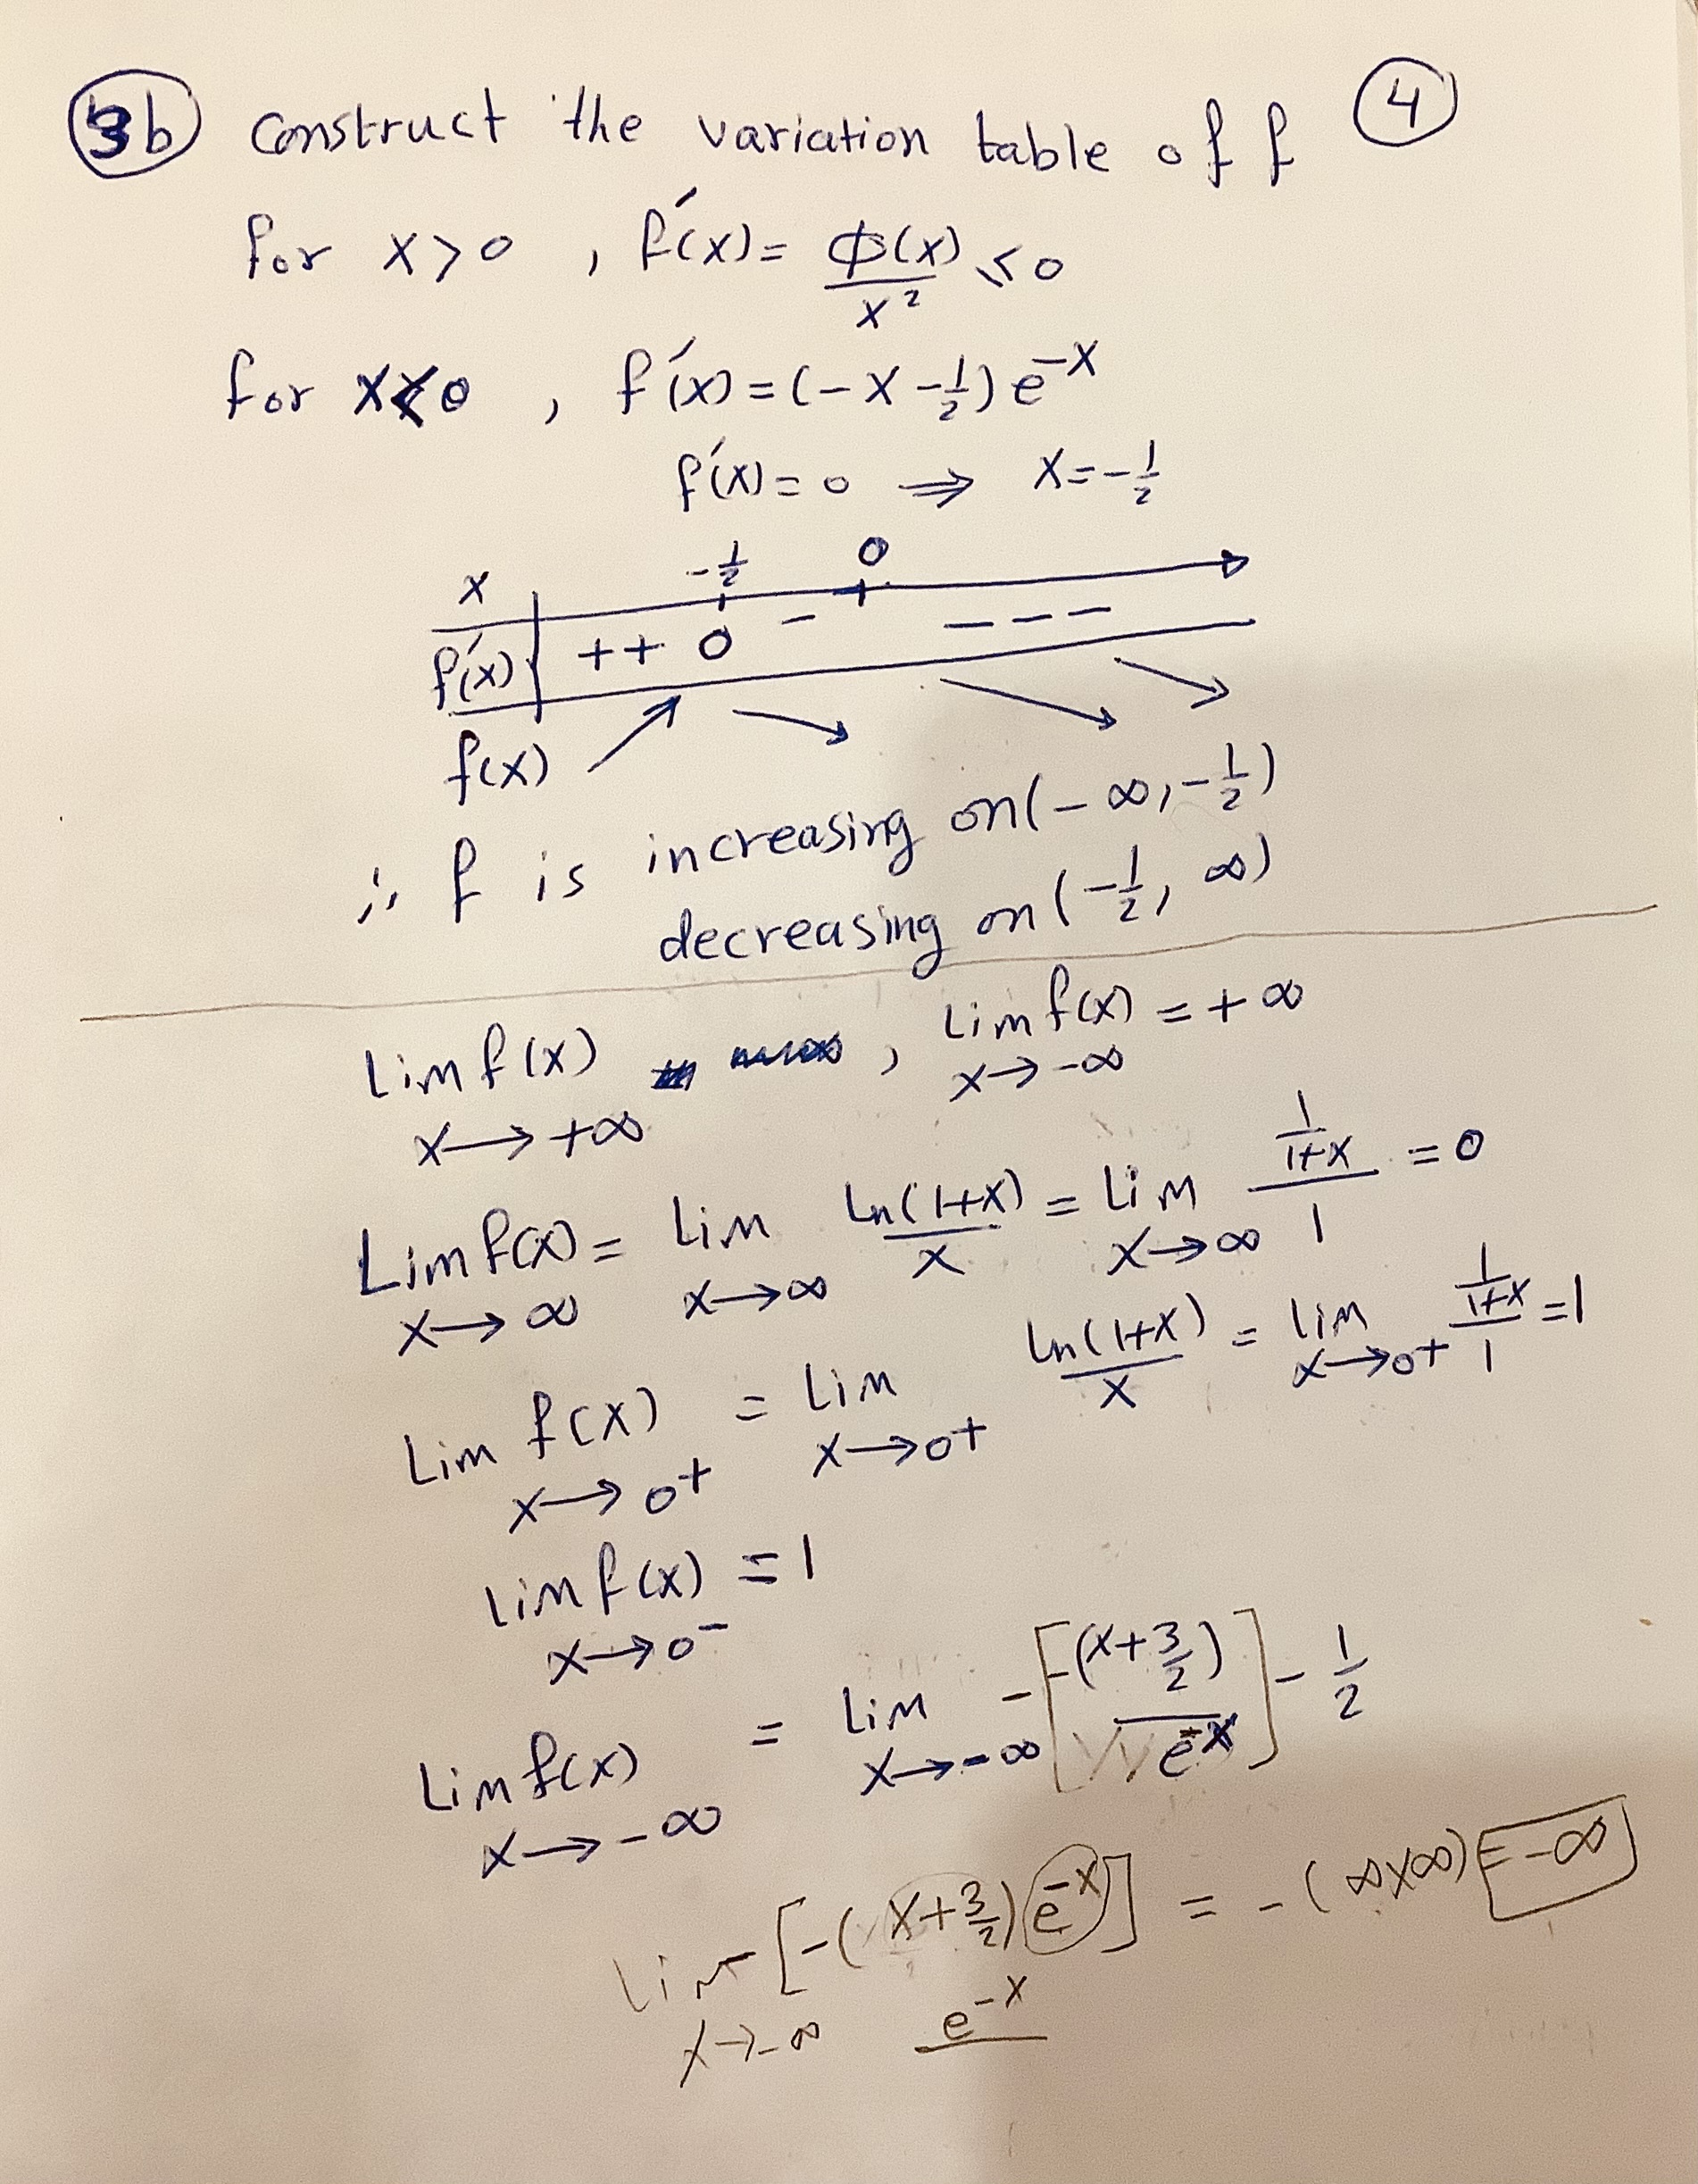 3b construct the variation table of f 4
for x>0 , f'(x) = ϕ(x)/x² ≤ 0
for x<0 , f'(x) = (-x - 1/2) e^-x
f'(x) = 0 ⇒ x = -1/2
x -1/2 0
f'(x) + + 0 - - - -
f(x) ↗ ↘ ↘ ↘
∴ f is increasing on (-∞, -1/2)
decreasing on (-1/2, ∞)
Lim f(x) x→+∞ , Lim f(x) x→-∞ = +∞
Lim f(x) x→∞ = Lim x→∞ Ln(1+x)/x = Lim x→∞ (1/(1+x))/1 = 0
Lim f(x) x→0+ = Lim x→0+ Ln(1+x)/x = Lim x→0+ (1/(1+x))/1 = 1
Lim f(x) x→0- = 1
Lim f(x) x→-∞ = Lim x→-∞ -[-(x+3/2)/e^x] - 1/2
Lim x→-∞ [-(x+3/2) e^-x] = -(∞×∞) = -∞
e^-x